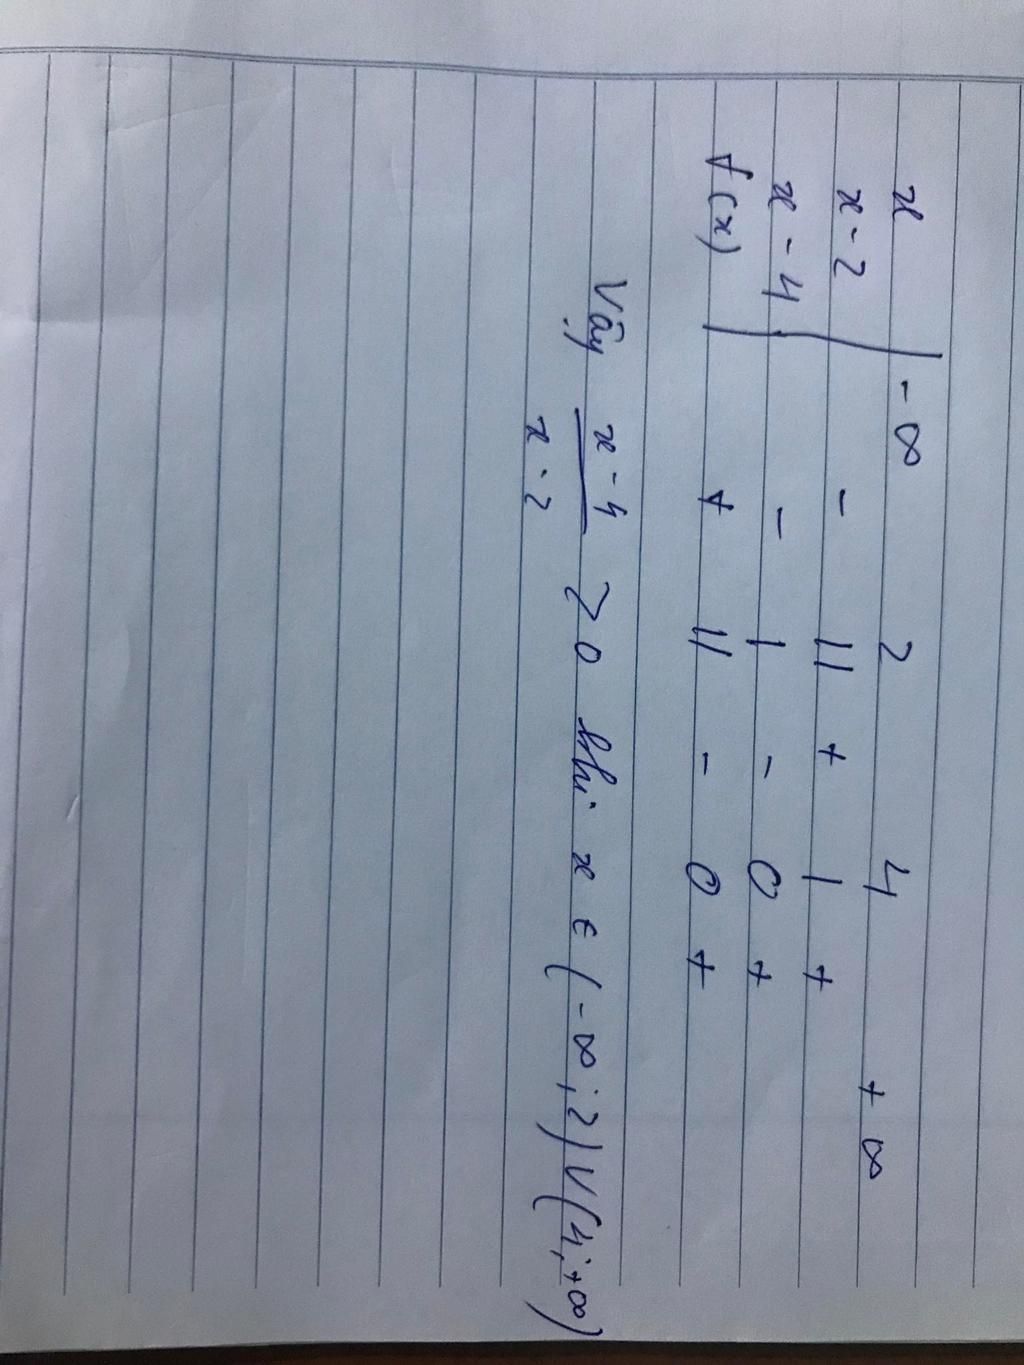 x | -∞ 2 4 +∞
x-2 | - || + | +
x-4 | - | - 0 +
f(x) | + || - 0 +
Vậy x-4 > 0 khi x ∈ (-∞; 2) ∪ (4; +∞)
x-2